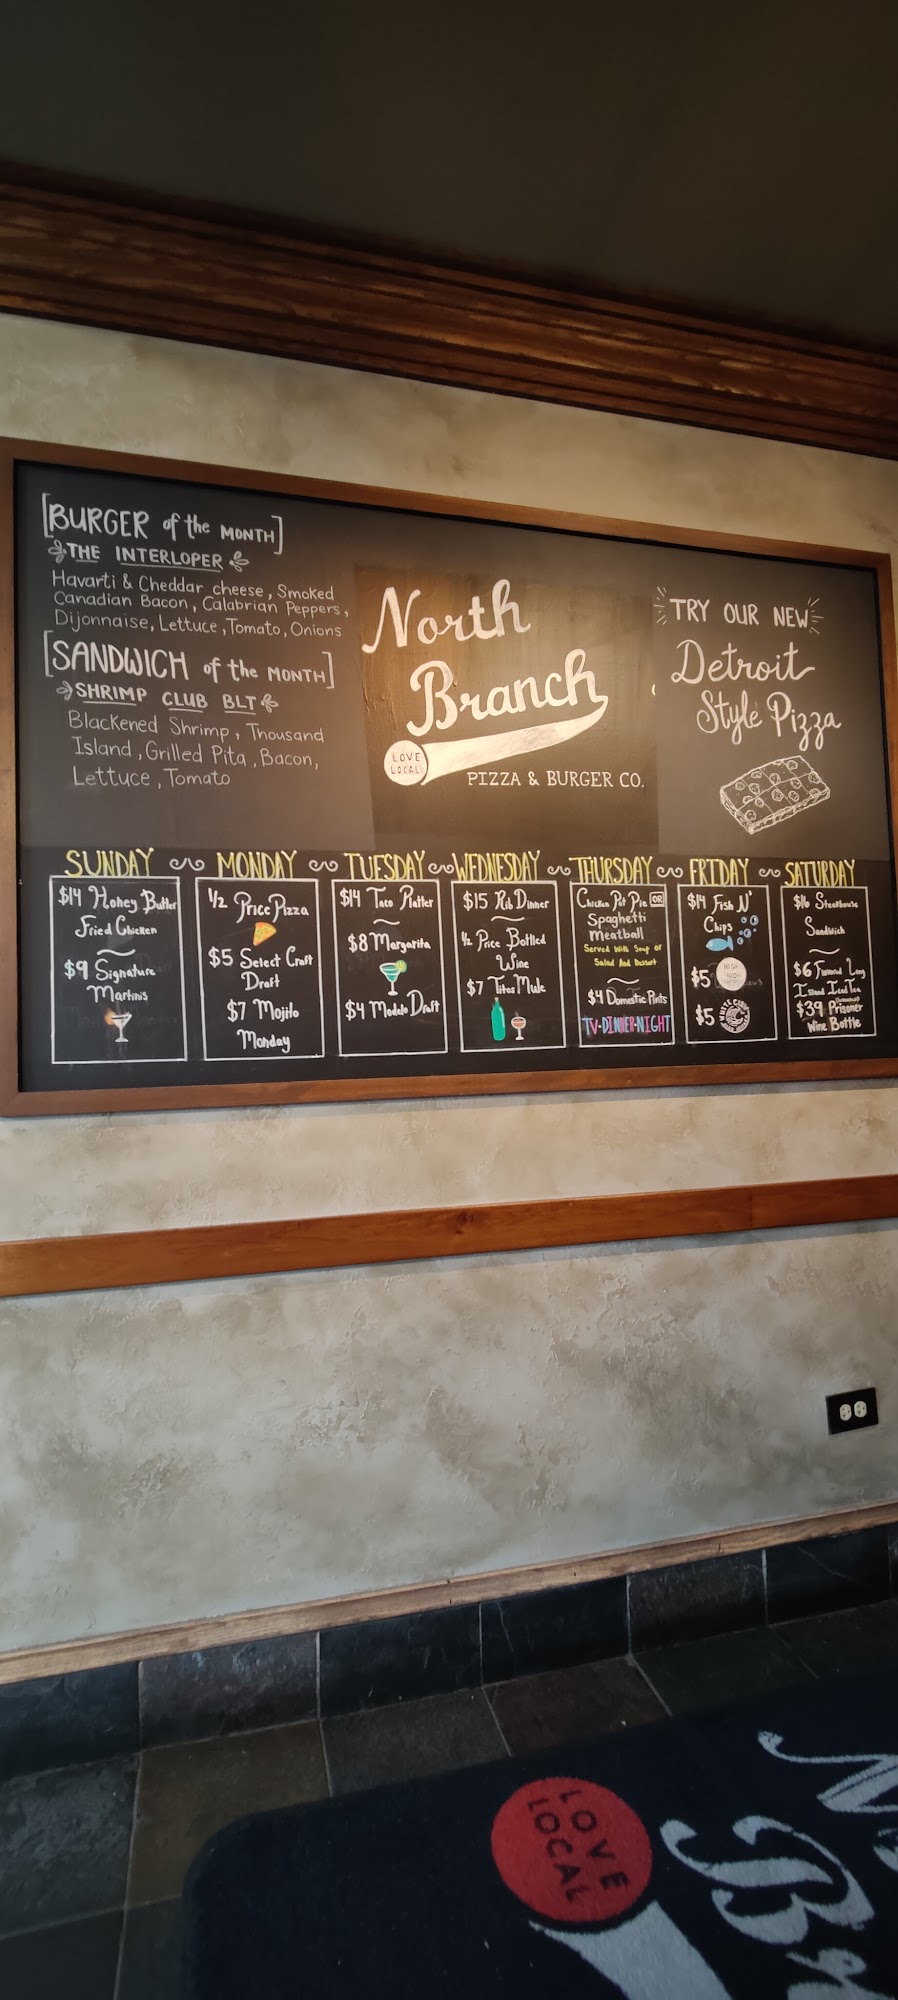 [BURGER of the MONTH]
THE INTERLOPER
Havarti & Cheddar cheese, Smoked
Canadian Bacon, Calabrian Peppers,
Dijonnaise, Lettuce, Tomato, Onions
[SANDWICH of the MONTH]
SHRIMP CLUB BLT
Blackened Shrimp, Thousand
Island, Grilled Pita, Bacon,
Lettuce, Tomato
North
Branch
LOVE
LOCAL!
PIZZA & BURGER CO.
TRY OUR NEW
Detroit
Style Pizza
SUNDAY
$14 Honey Butter
Fried Chicken
$9 Signature
Martinis
MONDAY
1/2 Price Pizza
$5 Select Craft
Draft
$7 Mojito
Monday
TUESDAY
$14 Taco Platter
$8 Margarita
$4 Modelo Draft
WEDNESDAY
$15 Rib Dinner
1/2 Price Bottled
Wine
$7 Titos Mule
THURSDAY
Chicken Pot Pie OR
Spaghetti
Meatball
Served With Soup or
Salad And Dessert
$4 Domestic Pints
TV·DINNER·NIGHT
FRIDAY
$14 Fish N'
Chips
$5 HIGH
NOON
$5 WHITE CLAW
SATURDAY
$16 Steakhouse
Sandwich
$6 Long
Island Iced Tea
$39 Prisoner
Wine Bottle
LOVE
LOCAL